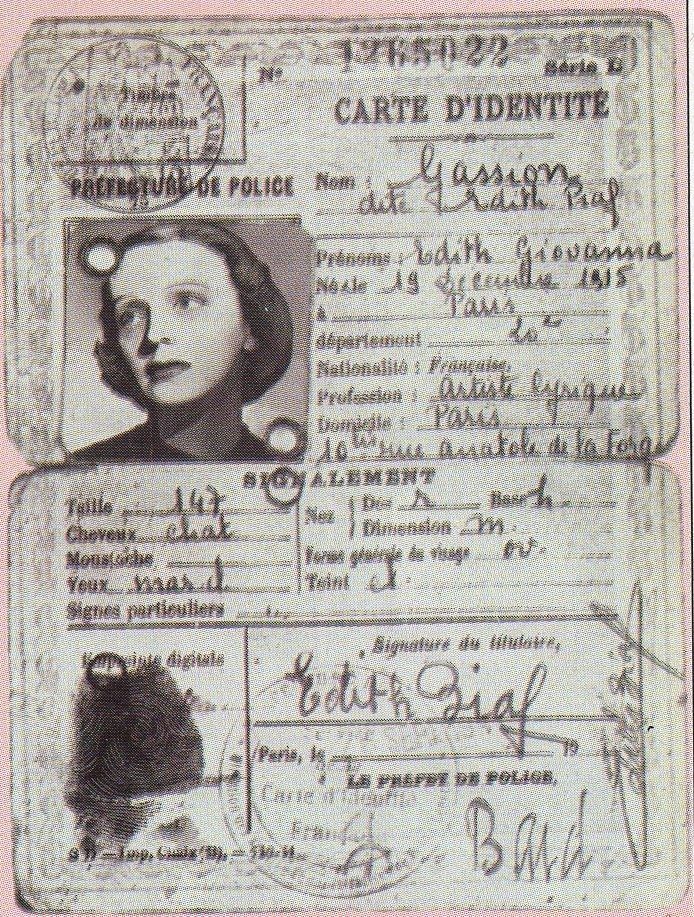 N° 1265022 Série E
Timbre
de dimension
FRANÇAIS
CARTE D'IDENTITÉ
PRÉFECTURE DE POLICE
Nom : Gassion
dite Edith Piaf
Prénoms : Edith Giovanna
Né le 19 Décembre 1915
à Paris
département
Nationalité : Française.
Profession : Artiste lyrique
Domicile : Paris
10 bis rue Anatole de la Forge
SIGNALEMENT
Taille 147
Cheveux chat
Moustache
Yeux mar
Signes particuliers
Nez Dos r Base h
Dimension m.
Forme générale du visage ov.
Teint cl.
Empreinte digitale
Signature du titulaire,
Edith Piaf
Paris, le 19
LE PRÉFET DE POLICE,
Carte d'identité
Française